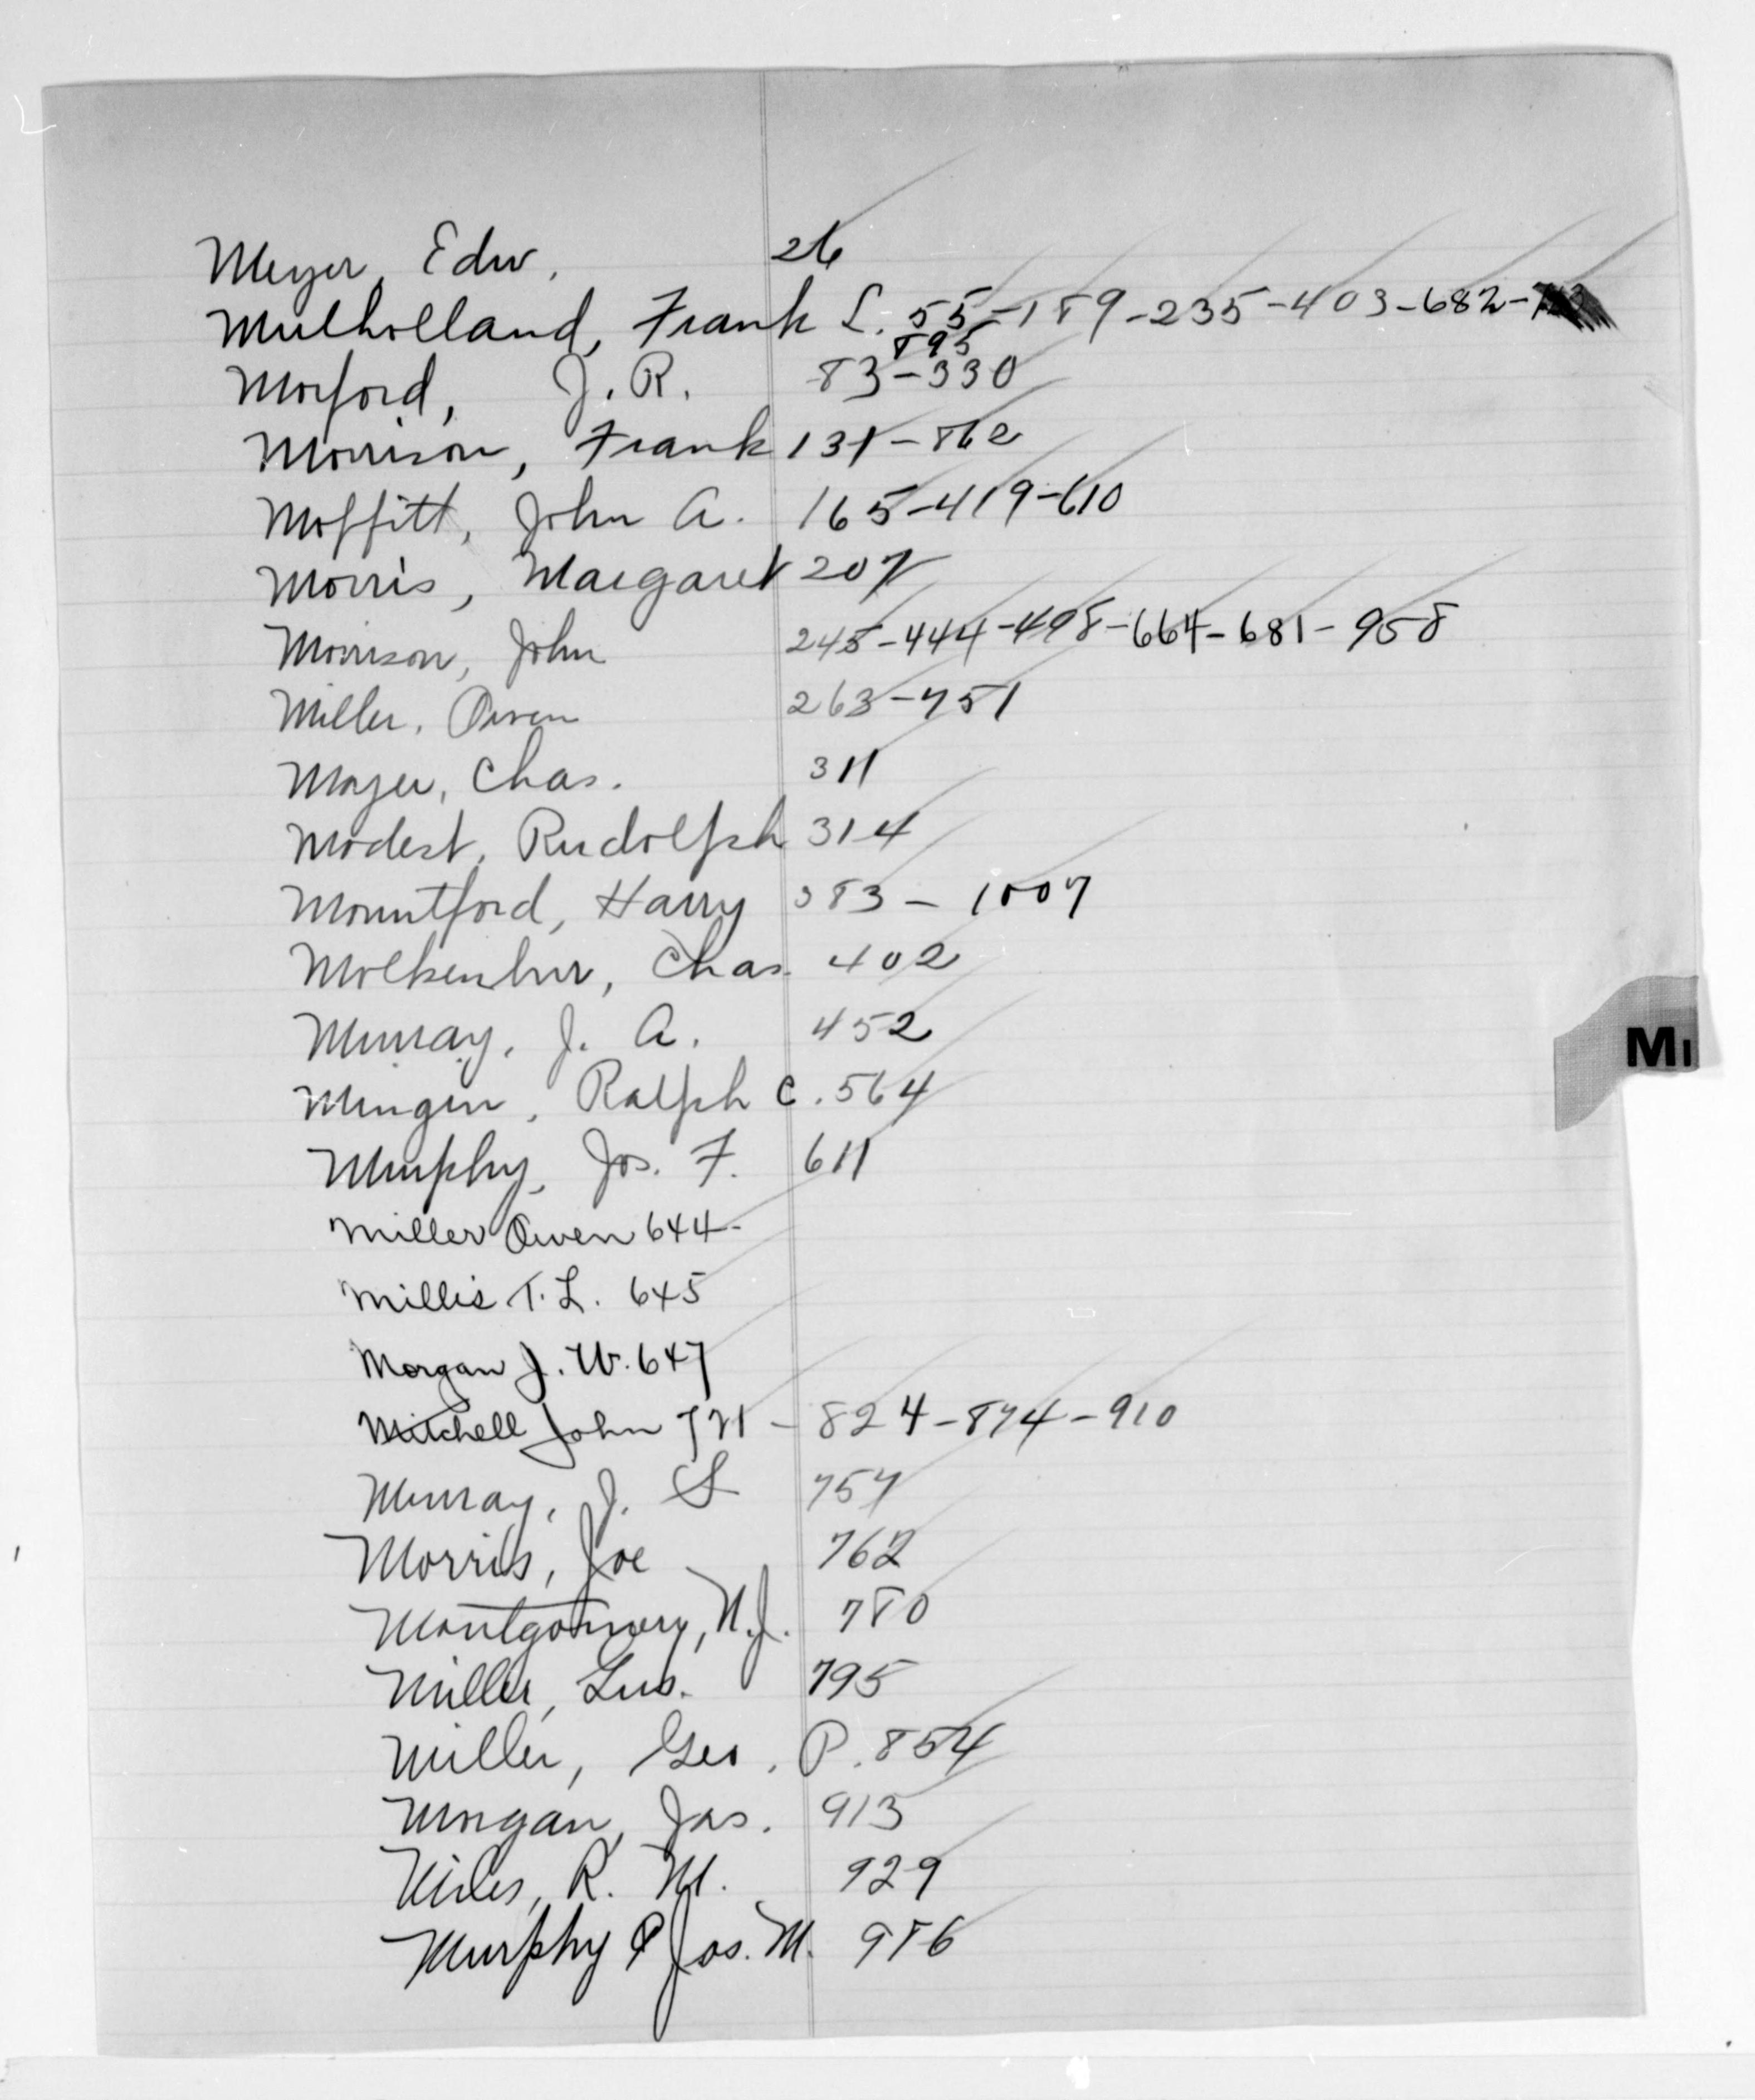 Meyer, Edw. 26
Mulholland, Frank L. 55-189-235-403-682-
895
Morford, J. R. 83-330
Morrison, Frank 131-862
Moffitt, John A. 165-419-610
Morris, Margaret 207
Morrison, John 245-444-498-664-681-958
Miller, Owen 263-751
Mayer, Chas. 311
Modest, Rudolph 314
Mountford, Harry 383 - 1007
Molkenbur, Chas. 402
Murray, J. A. 452
Mingen, Ralph C. 564
Murphy, Jos. F. 611
Miller Owen 644
Millis T. L. 645
Morgan J. W. 647
Mitchell John 721 - 824-874-910
Murray, J. S 757
Morris, Joe 762
Montgomery, N.J. 780
Miller, Gus. 795
Miller, Geo. P. 854
Morgan, Jas. 913
Miles, R. M. 929
Murphy Jos. M. 986
M